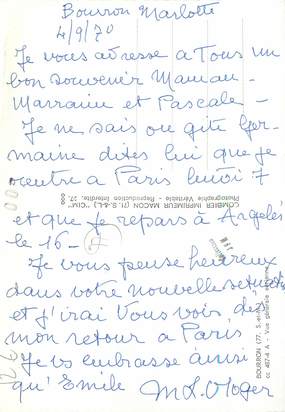 Bourron Marlotte
4/9/70
Je vous adresse a Tous un
bon souvenir Maman -
Marraine et Pascale -
Je ne sais ou gite Ger-
maine dites lui que je
rentre a Paris lundi 7
et que je repars à Argelès
le 16 -
Je vous pense heureux
dans votre nouvelle
et j'irai Vous voir, dès
mon retour a Paris
Je vs embrasse ainsi
qu'Emile
COMBIER IMPRIMEUR MACON (71. S.-&-L.) "CIM"
Photographie Véritable - Reproduction Interdite
BOURRON (77. S.-et-M.)